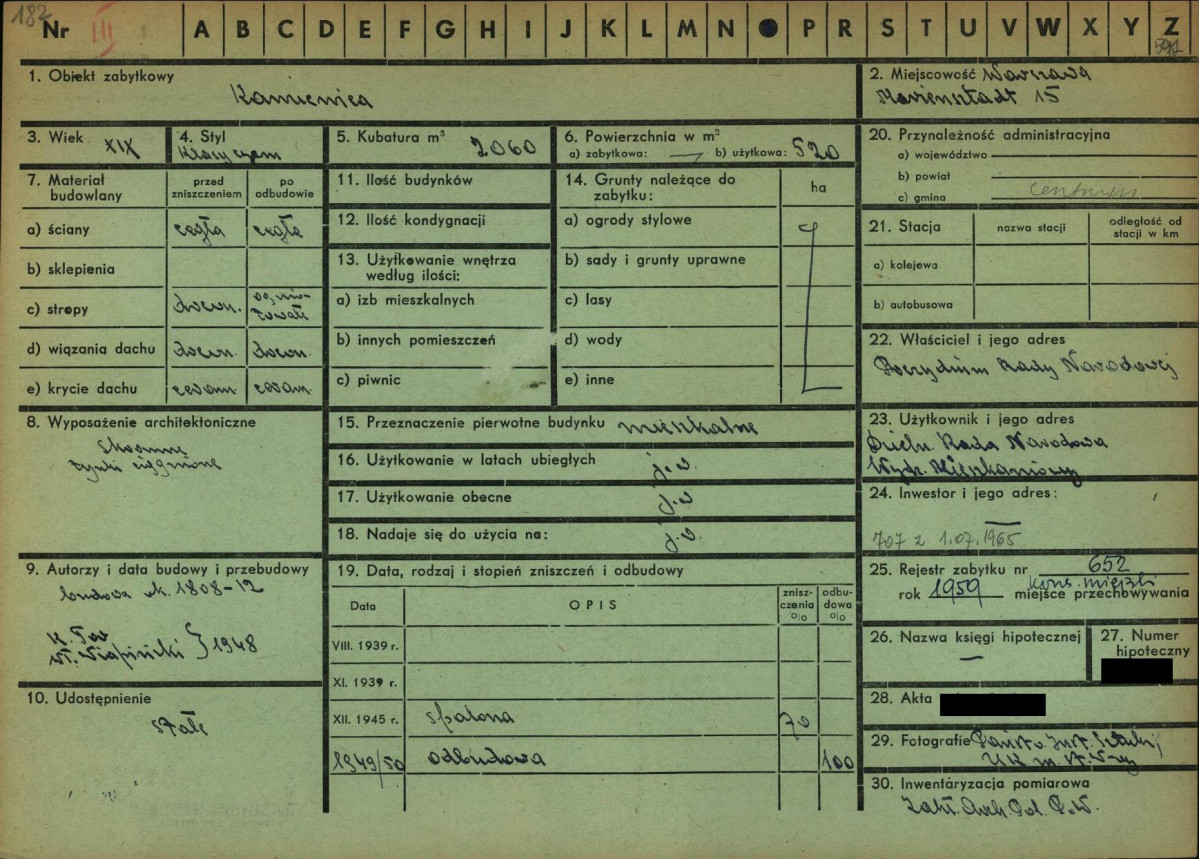 182
Nr III A B C D E F G H I J K L M N P R S T U V W X Y Z
1. Obiekt zabytkowy Kamienica
2. Miejscowość Warszawa
Mariensztadt 15
3. Wiek XIX
4. Styl
Klasycyzm
5. Kubatura m³ 2060
6. Powierzchnia w m²
a) zabytkowa: — b) użytkowa: 520
20. Przynależność administracyjna
a) województwo
b) powiat
c) gmina Centrum
7. Materiał budowlany
przed zniszczeniem
po odbudowie
a) ściany cegła cegła
b) sklepienia
c) stropy drewn. ognio-
trwałe
d) wiązania dachu drewn. drewn.
e) krycie dachu ceram. ceram.
11. Ilość budynków
12. Ilość kondygnacji
13. Użytkowanie wnętrza
według ilości:
a) izb mieszkalnych
b) innych pomieszczeń
c) piwnic
14. Grunty należące do
zabytku:
ha
a) ogrody stylowe
b) sady i grunty uprawne
c) lasy
d) wody
e) inne
21. Stacja
nazwa stacji
odległość od
stacji w km
a) kolejowa
b) autobusowa
22. Właściciel i jego adres
Prezydium Rady Narodowej
8. Wyposażenie architektoniczne
Skromne
tynki ciągnione
15. Przeznaczenie pierwotne budynku mieszkalne
16. Użytkowanie w latach ubiegłych j.w.
17. Użytkowanie obecne j.w
18. Nadaje się do użycia na: j.w.
23. Użytkownik i jego adres
Dzieln. Rada Narodowa
Wydz. Mieszkaniowy
24. Inwestor i jego adres:
—
707 z 1.07.1965
9. Autorzy i data budowy i przebudowy
budowa ok. 1808-12
1948
10. Udostępnienie
stałe
19. Data, rodzaj i stopień zniszczeń i odbudowy
Data
OPIS
znisz-
czenia
o|o
odbu-
dowa
o|o
VIII. 1939 r.
XI. 1939 r.
XII. 1945 r. spalona 70
1949/50 odbudowa 100
25. Rejestr zabytku nr 652
rok 1959 kons. miejski
miejsce przechowywania
26. Nazwa księgi hipotecznej
—
27. Numer
hipoteczny
28. Akta
29. Fotografie Państw. Inst. Sztuki,
UK m. st. W-wy
30. Inwentaryzacja pomiarowa
Zakł. Arch. Pol. P.W.